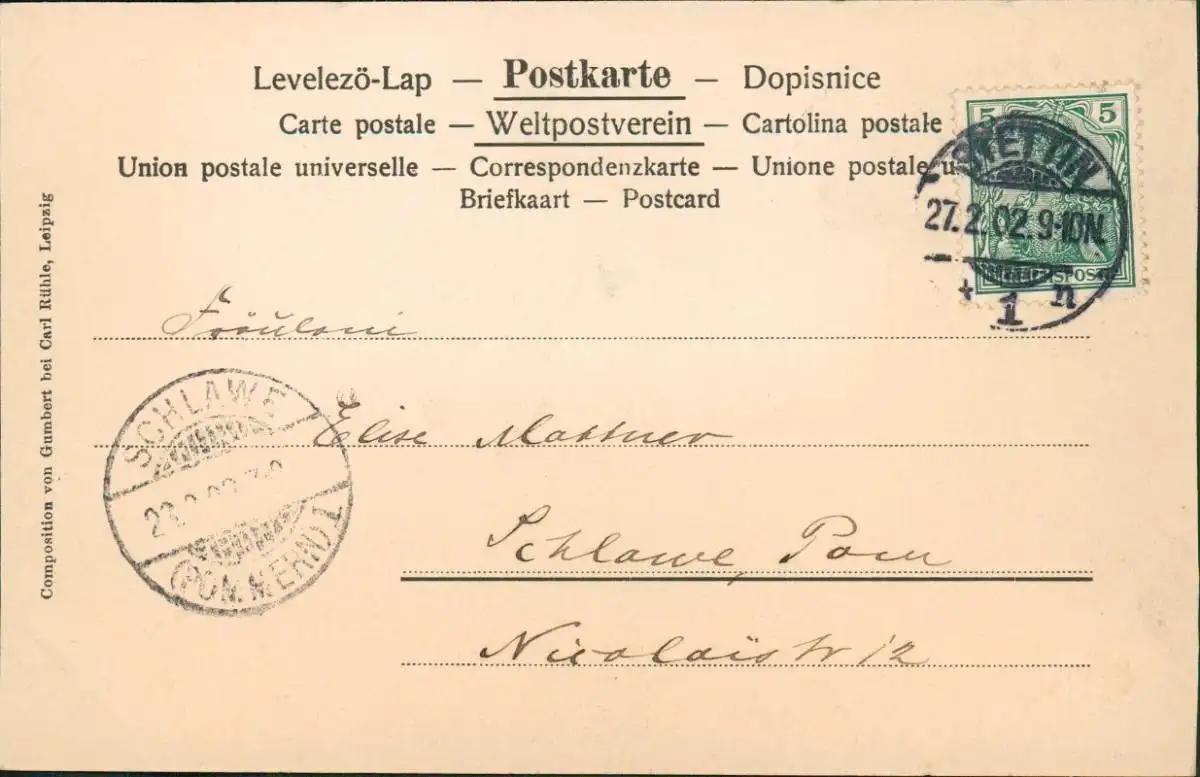 Levelezö-Lap — Postkarte — Dopisnice
Carte postale — Weltpostverein — Cartolina postale
Union postale universelle — Correspondenzkarte — Unione postale u
Briefkaart — Postcard
5 5
REICHSPOST
STETTIN
27.2.02.9-10N.
* 1 n
Composition von Gumbert bei Carl Rühle, Leipzig
Fräulein
Elise Mattner
Schlawe, Pom
Nicolaistr 12
SCHLAWE
(POMMERN) 1